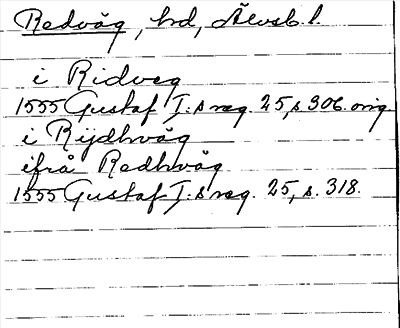 Redväg, hd, Älvsb. l.
i Ridveg
1555 Gustaf I:s reg. 25, s 306. orig.
i Rijdhvåg
ifrå Redhvåg
1555 Gustaf I:s reg. 25, s. 318.